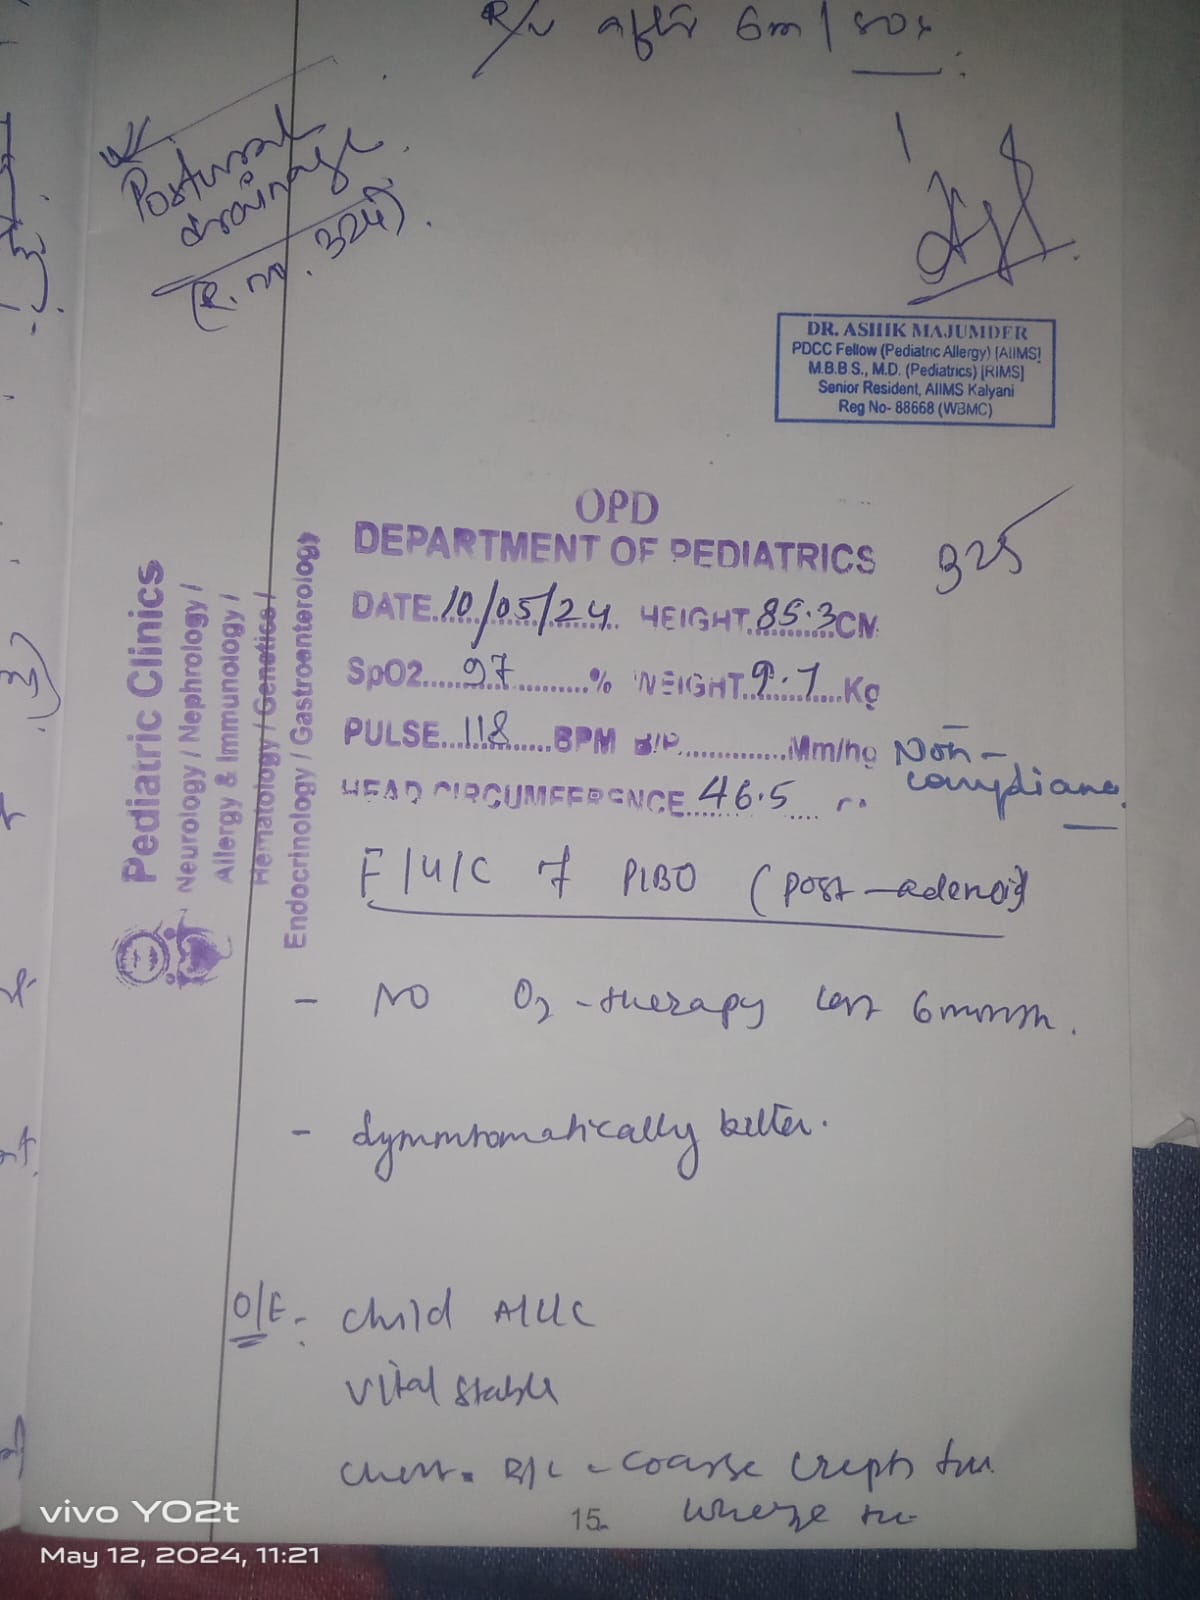 R/v after 6m / sos.
Postural
drainage
(R. no. 324).
DR. ASHIK MAJUMDER
PDCC Fellow (Pediatric Allergy) [AIIMS]
M.B.B.S., M.D. (Pediatrics) [RIMS]
Senior Resident, AIIMS Kalyani
Reg No- 88668 (WBMC)
Pediatric Clinics
Neurology / Nephrology /
Allergy & Immunology /
Hematology / Genetics /
Endocrinology / Gastroenterology
OPD
DEPARTMENT OF PEDIATRICS
325
DATE 10/05/24 HEIGHT 85.3 CM
SpO2 97 % WEIGHT 9.7 Kg
PULSE 118 BPM B/P Mm/hg
Non-
compliance.
HEAD CIRCUMFERENCE 46.5
F/U/C PIBO (post-adeno
- NO O2-therapy last 6 month.
- Symmtomatically better.
O/E - Child
vital stable
Chest. B/L - coarse crepts
wheeze
15
vivo Y02t
May 12, 2024, 11:21